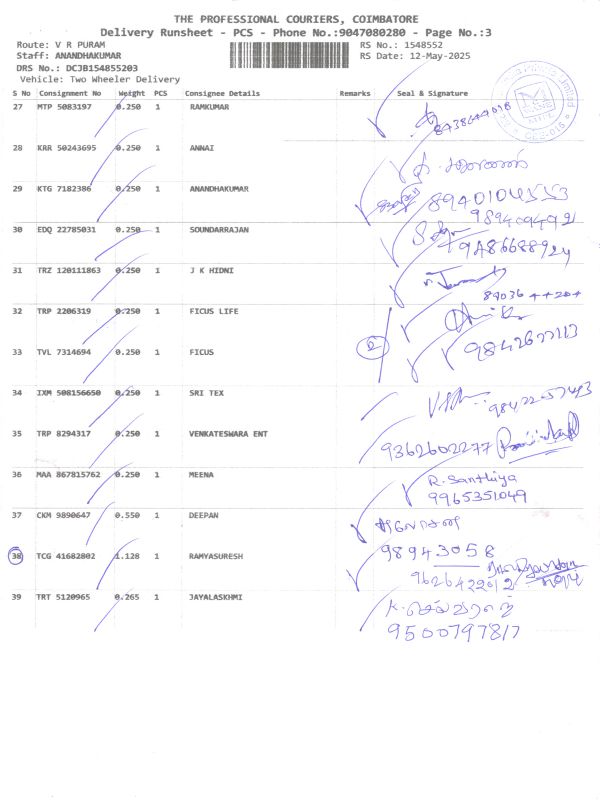 THE PROFESSIONAL COURIERS, COIMBATORE
Delivery Runsheet - PCS - Phone No.:9047080280 - Page No.:3
Route: V R PURAM
RS No.: 1548552
Staff: ANANDHAKUMAR
RS Date: 12-May-2025
DRS No.: DCJB154855203
Vehicle: Two Wheeler Delivery
S No Consignment No Weight PCS Consignee Details Remarks Seal & Signature
27 MTP 5083197 0.250 1 RAMKUMAR
8438644018
28 KRR 50243695 0.250 1 ANNAI
29 KTG 7182386 0.250 1 ANANDHAKUMAR
8940104553
9894094992
30 EDQ 22785031 0.250 1 SOUNDARRAJAN
9486688924
31 TRZ 120111863 0.250 1 J K HIDNI
32 TRP 2206319 0.250 1 FICUS LIFE
2
33 TVL 7314694 0.250 1 FICUS
34 IXM 508156650 0.250 1 SRI TEX
35 TRP 8294317 0.250 1 VENKATESWARA ENT
9362602277
36 MAA 867815762 0.250 1 MEENA
R. Santhiya
9965351049
37 CKM 9890647 0.550 1 DEEPAN
38 TCG 41682802 1.128 1 RAMYASURESH
9626422012
39 TRT 5120965 0.265 1 JAYALASKHMI
9500797817